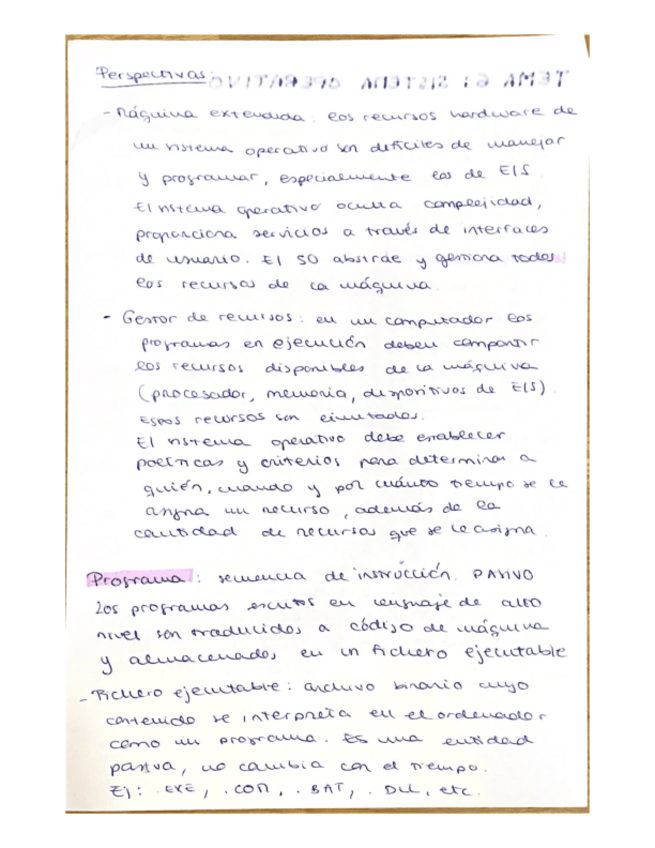 Perspectivas:
TEMA 6: SISTEMA OPERATIVO
- Máquina extendida: los recursos hardware de
un sistema operativo son difíciles de manejar
y programar, especialmente los de E/S.
El sistema operativo oculta complejidad,
proporciona servicios a través de interfaces
de usuario. El SO abstrae y gestiona todos
los recursos de la máquina.
- Gestor de recursos: en un computador los
programas en ejecución deben compartir
los recursos disponibles de la máquina
(procesador, memoria, dispositivos de E/S).
Estos recursos son limitados.
El sistema operativo debe establecer
políticas y criterios para determinar a
quién, cuando y por cuánto tiempo se le
asigna un recurso, además de la
cantidad de recursos que se le asigna.
Programa: secuencia de instrucción. PASIVO
Los programas escritos en lenguaje de alto
nivel son traducidos a código de máquina
y almacenados en un fichero ejecutable
- Fichero ejecutable: archivo binario cuyo
contenido se interpreta en el ordenador
como un programa. Es una entidad
pasiva, no cambia con el tiempo.
Ej: .EXE, .COM, .BAT, .DLL, etc.